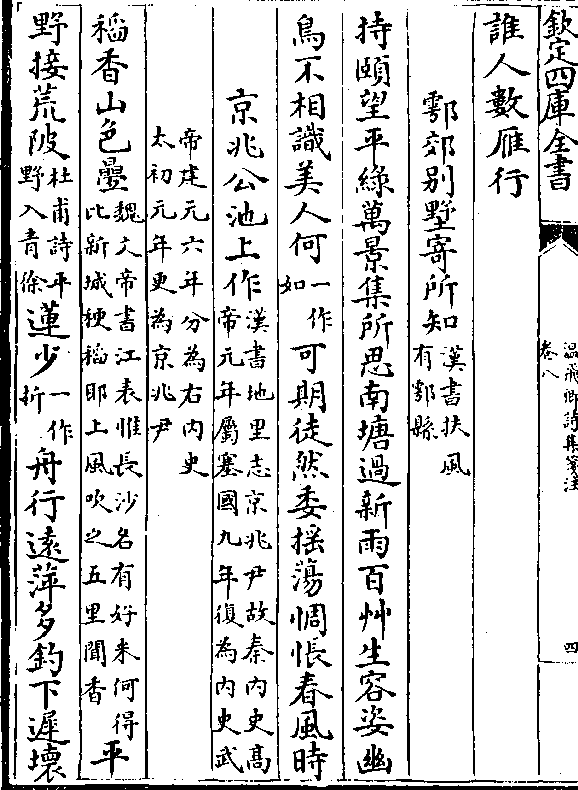 欽定四庫全書
溫飛卿詩集箋注
卷八
四
誰人數雁行
鄠郊別墅寄所知漢書扶風
有鄠縣
持頤望平綠萬景集所思南塘過新雨百艸生容姿幽
鳥不相識美人何一作
如可期徒然委搖蕩惆悵春風時
京兆公池上作漢書地里志京兆尹故秦內史高
帝元年屬塞國九年復為內史武
帝建元六年分為右內史
太初元年更為京兆尹
稻香山色疊魏文帝書江表惟長沙名有好米何得
比新城粳稻耶上風吹之五里聞香平
野接荒陂杜甫詩平
野入青徐蓮少一作
折舟行遠萍多釣下遲壞